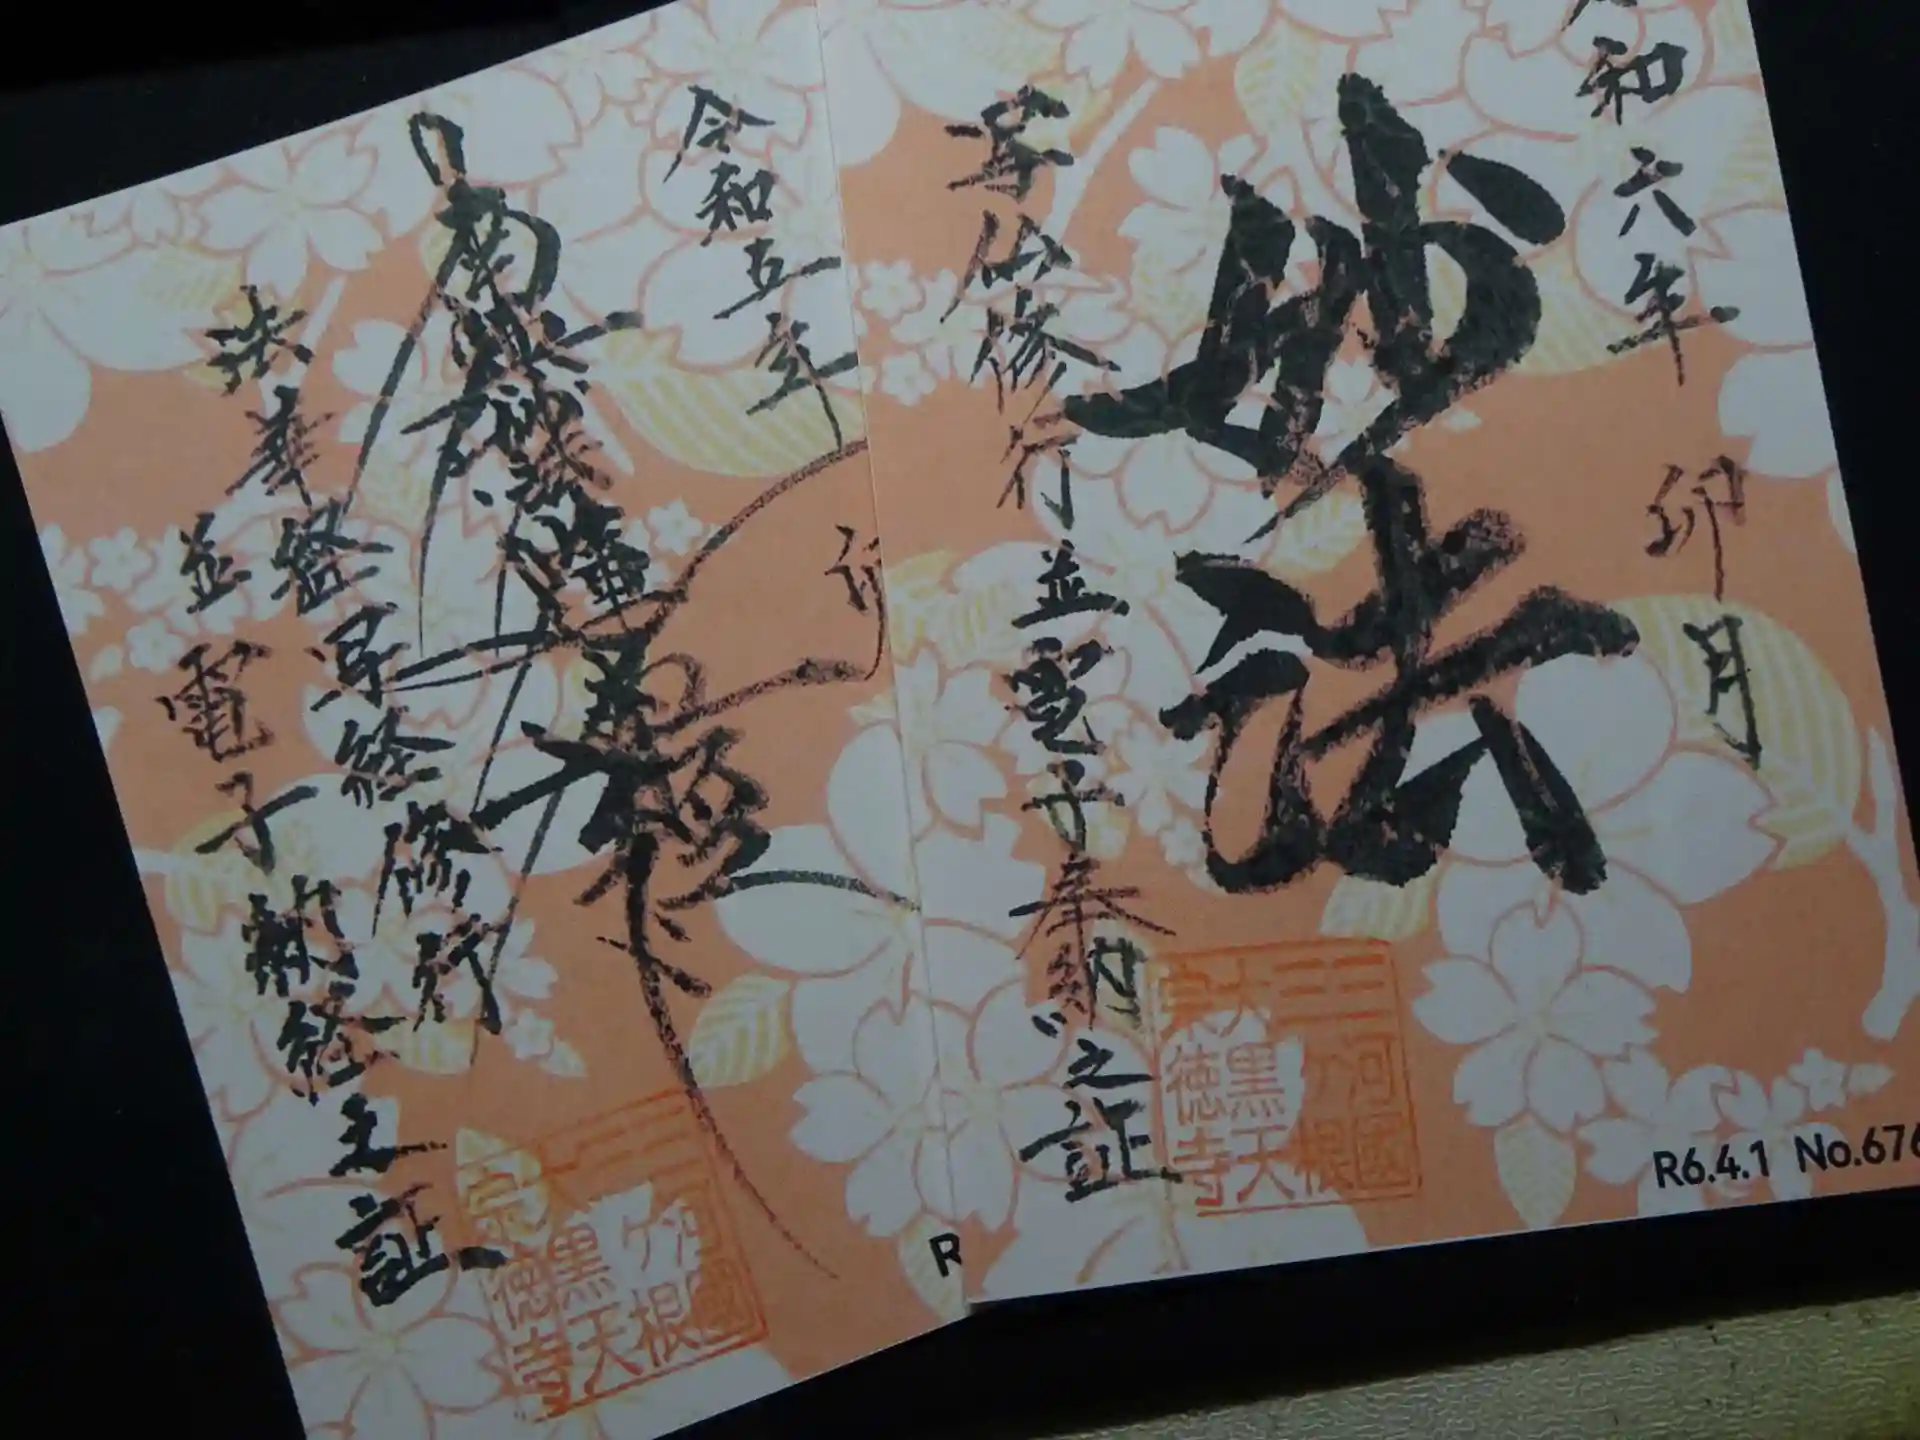 和六年
卯月
妙法
写仏修行並電子奉納之証
三河國
ケ根
大黒天
宗徳寺
R6.4.1 No.676
令和五年
南無妙法蓮華経
法華経写経修行
並電子納経之証
三河國
ケ根
大黒天
宗徳寺
R